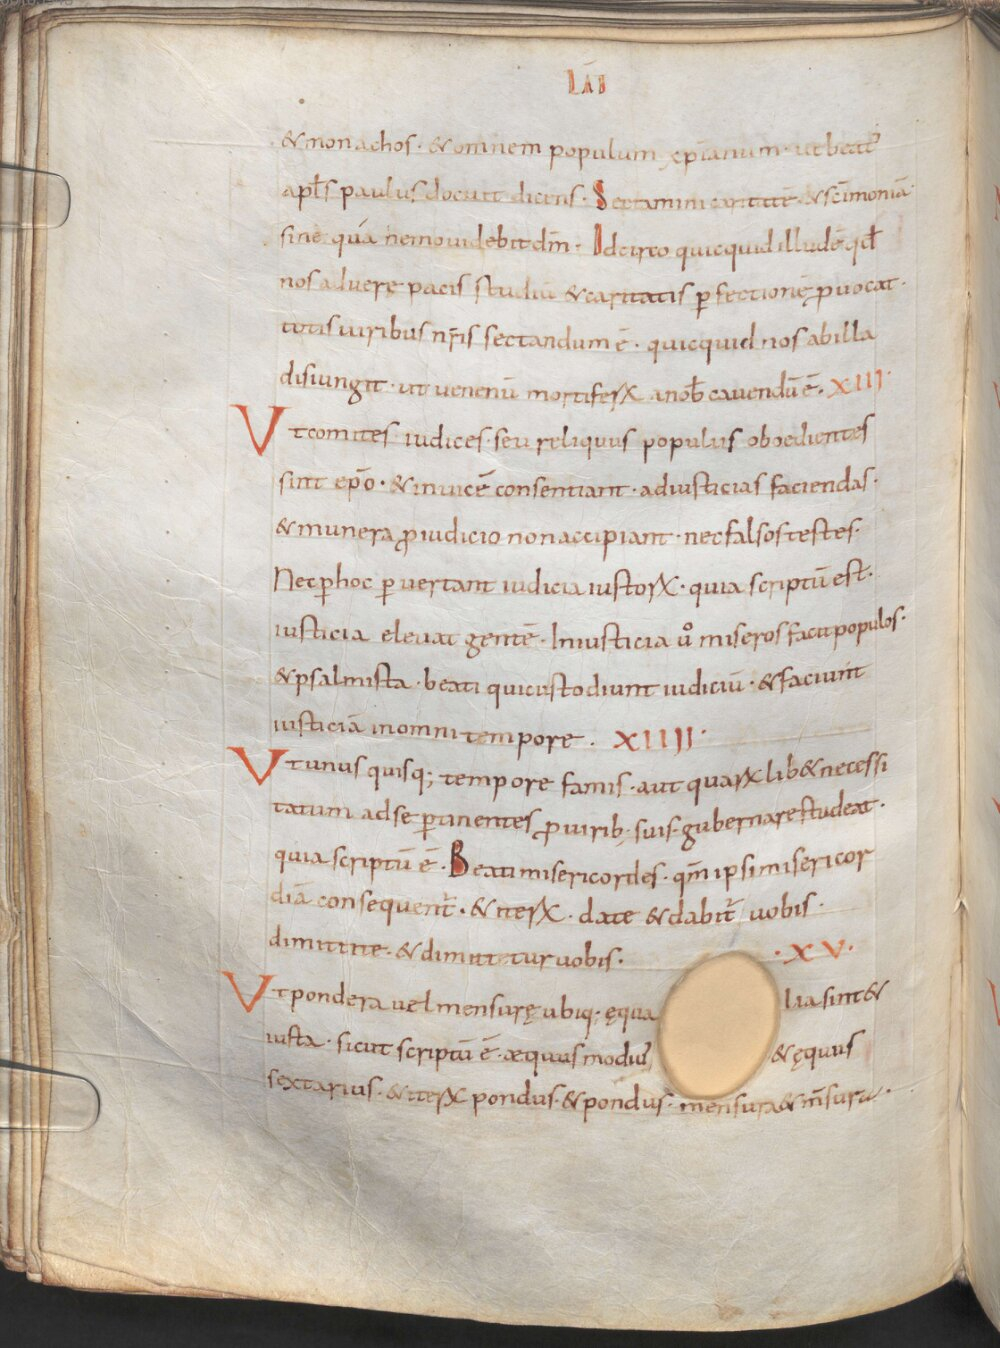 LĀB
& monachos · & omnem populum xp̄ianum · ut beat᷒
apłs paulus docuit dicens · Sectamini caritatē · & sc̄imonia
sine qua nemo uidebit dm̄ · Idcirco quicquid illud ē qđ
nos ad uerę pacis studiū & caritatis ꝑfectionē ꝓuocat ·
totis uiribus nr̄is sectandum ē · quicquid nos ab illa
disiungit · ut uenenū mortiferꝝ a nob̄ cauendū ē · XIII ·
Vt comites iudices · seu reliquus populus oboedientes
sint ep̄o · & inuicē consentiant · ad iusticias faciendas ·
& munera ꝓ iudicio non accipiant · nec falsos testes ·
Nec ꝑ hoc ꝑuertant iudicia iustorꝝ · quia scriptū est ·
iusticia eleuat gentē · Iniusticia ů miseros facit populos ·
& psalmista · beati qui custodiunt iudiciū · & faciunt
iusticiā in omni tempore · XIIII ·
Vt unus quisq; tempore famis · aut quarꝝlib& necessi
tatum ad se ꝑtinentes ꝓ uirib; suis · gubernare studeat ·
quia scriptū ē · Beati misericordes · qm̄ ipsi misericor
diā consequent̄ · & iterꝝ · date & dabit̄ uobis ·
dimittite · & dimittetur uobis · · XV ·
Vt pondera uel mensurę ubiq; ęqua lia sint &
iusta · sicut scriptū ē · æquus modius & ęquus
sextarius · & iterꝝ pondus · & pondus · mensura & m̄sura ·